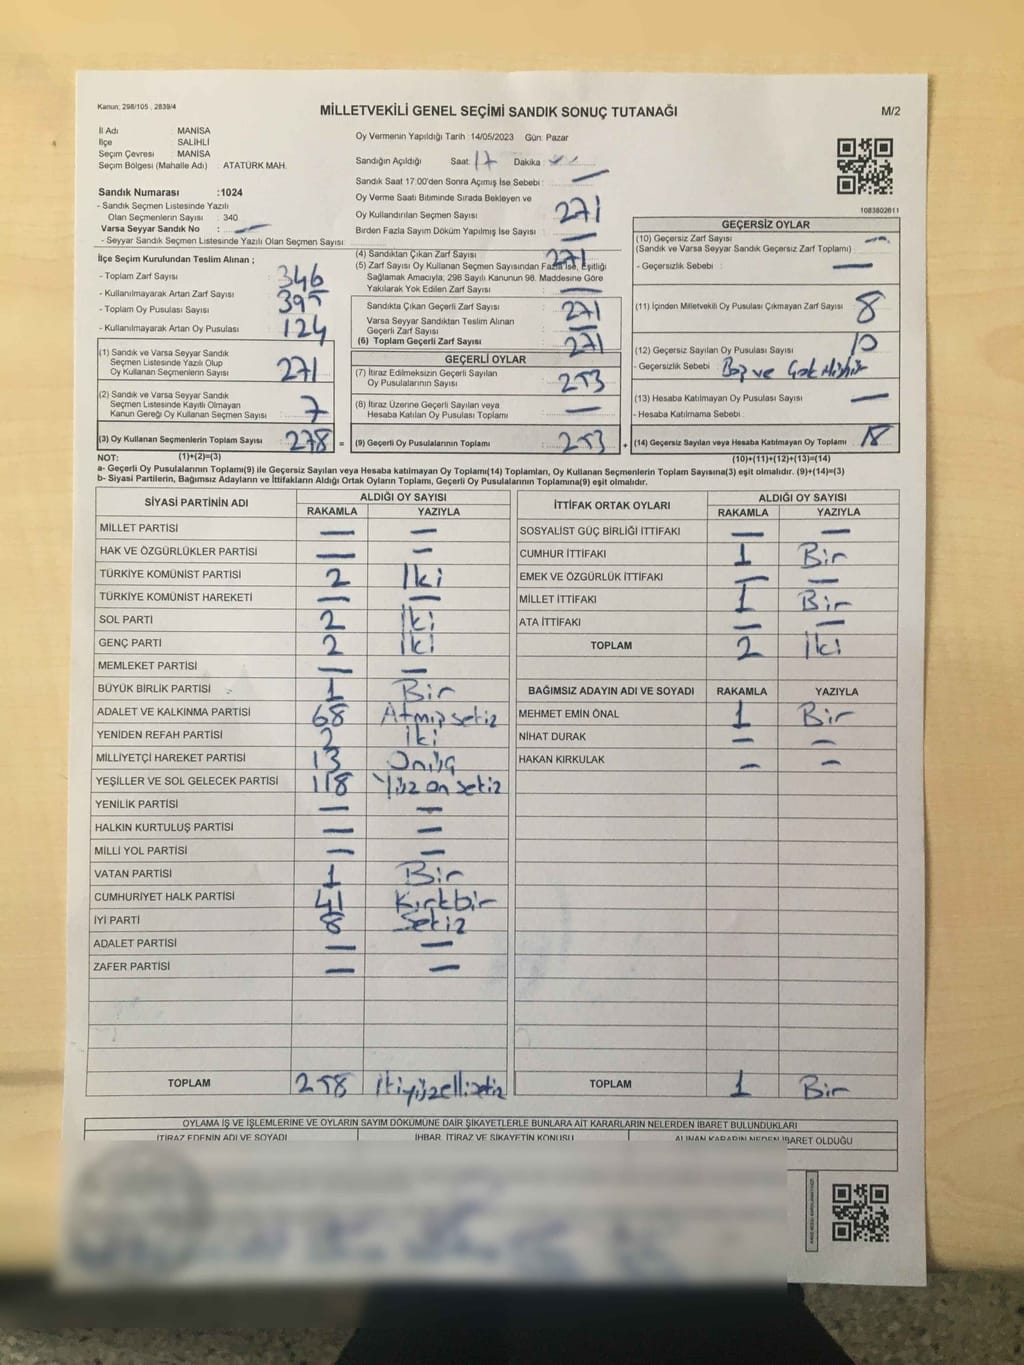 Kanun: 298/105 , 2839/4
MİLLETVEKİLİ GENEL SEÇİMİ SANDIK SONUÇ TUTANAĞI
M/2
İl Adı : MANİSA
İlçe : SALİHLİ
Seçim Çevresi : MANİSA
Seçim Bölgesi (Mahalle Adı) : ATATÜRK MAH.
Sandık Numarası :1024
- Sandık Seçmen Listesinde Yazılı
Olan Seçmenlerin Sayısı : 340
Varsa Seyyar Sandık No : —
- Seyyar Sandık Seçmen Listesinde Yazılı Olan Seçmen Sayısı:
İlçe Seçim Kurulundan Teslim Alınan ;
- Toplam Zarf Sayısı : 346
- Kullanılmayarak Artan Zarf Sayısı
- Toplam Oy Pusulası Sayısı : 395
- Kullanılmayarak Artan Oy Pusulası : 124
(1) Sandık ve Varsa Seyyar Sandık
Seçmen Listesinde Yazılı Olup
Oy Kullanan Seçmenlerin Sayısı : 271
(2) Sandık ve Varsa Seyyar Sandık
Seçmen Listesinde Kayıtlı Olmayan
Kanun Gereği Oy Kullanan Seçmen Sayısı : 7
(3) Oy Kullanan Seçmenlerin Toplam Sayısı : 278 =
Oy Vermenin Yapıldığı Tarih :14/05/2023 Gün: Pazar
Sandığın Açıldığı Saat: 17 Dakika :
Sandık Saat 17:00'den Sonra Açmış İse Sebebi : —
Oy Verme Saati Bitiminde Sırada Bekleyen ve
Oy Kullandırılan Seçmen Sayısı : 271
Birden Fazla Sayım Döküm Yapılmış İse Sayısı : —
(4) Sandıktan Çıkan Zarf Sayısı : 271
(5) Zarf Sayısı Oy Kullanan Seçmen Sayısından Fazla İse, Eşitliği
Sağlamak Amacıyla; 298 Sayılı Kanunun 98. Maddesine Göre
Yakılarak Yok Edilen Zarf Sayısı : —
Sandıkta Çıkan Geçerli Zarf Sayısı : 271
Varsa Seyyar Sandıktan Teslim Alınan
Geçerli Zarf Sayısı : —
(6) Toplam Geçerli Zarf Sayısı : 271
GEÇERLİ OYLAR
(7) İtiraz Edilmeksizin Geçerli Sayılan
Oy Pusulalarının Sayısı : 253
(8) İtiraz Üzerine Geçerli Sayılan veya
Hesaba Katılan Oy Pusulası Toplamı : —
(9) Geçerli Oy Pusulalarının Toplamı : 253 +
1083802611
GEÇERSİZ OYLAR
(10) Geçersiz Zarf Sayısı : —
(Sandık ve Varsa Seyyar Sandık Geçersiz Zarf Toplamı)
- Geçersizlik Sebebi : —
(11) İçinden Milletvekili Oy Pusulası Çıkmayan Zarf Sayısı : 8
(12) Geçersiz Sayılan Oy Pusulası Sayısı : 10
- Geçersizlik Sebebi : Boş ve Çok
(13) Hesaba Katılmayan Oy Pusulası Sayısı : —
- Hesaba Katılmama Sebebi :
(14) Geçersiz Sayılan veya Hesaba Katılmayan Oy Toplamı : 18
NOT: (1)+(2)=(3) (10)+(11)+(12)+(13)=(14)
a- Geçerli Oy Pusulalarının Toplamı(9) ile Geçersiz Sayılan veya Hesaba katılmayan Oy Toplamı(14) Toplamları, Oy Kullanan Seçmenlerin Toplam Sayısına(3) eşit olmalıdır. (9)+(14)=(3)
b- Siyasi Partilerin, Bağımsız Adayların ve İttifakların Aldığı Ortak Oyların Toplamı, Geçerli Oy Pusulalarının Toplamına(9) eşit olmalıdır.
SİYASİ PARTİNİN ADI ALDIĞI OY SAYISI
RAKAMLA YAZIYLA
MİLLET PARTİSİ — —
HAK VE ÖZGÜRLÜKLER PARTİSİ — —
TÜRKİYE KOMÜNİST PARTİSİ 2 İki
TÜRKİYE KOMÜNİST HAREKETİ — —
SOL PARTİ 2 İki
GENÇ PARTİ 2 İki
MEMLEKET PARTİSİ — —
BÜYÜK BİRLİK PARTİSİ 1 Bir
ADALET VE KALKINMA PARTİSİ 68 Atmış sekiz
YENİDEN REFAH PARTİSİ 2 İki
MİLLİYETÇİ HAREKET PARTİSİ 13 Onüç
YEŞİLLER VE SOL GELECEK PARTİSİ 118 Yüz on sekiz
YENİLİK PARTİSİ — —
HALKIN KURTULUŞ PARTİSİ — —
MİLLİ YOL PARTİSİ — —
VATAN PARTİSİ 1 Bir
CUMHURİYET HALK PARTİSİ 41 Kırkbir
İYİ PARTİ 8 Sekiz
ADALET PARTİSİ — —
ZAFER PARTİSİ — —
TOPLAM 258 İkiyüzellisekiz
İTTİFAK ORTAK OYLARI ALDIĞI OY SAYISI
RAKAMLA YAZIYLA
SOSYALİST GÜÇ BİRLİĞİ İTTİFAKI — —
CUMHUR İTTİFAKI 1 Bir
EMEK VE ÖZGÜRLÜK İTTİFAKI — —
MİLLET İTTİFAKI 1 Bir
ATA İTTİFAKI — —
TOPLAM 2 İki
BAĞIMSIZ ADAYIN ADI VE SOYADI RAKAMLA YAZIYLA
MEHMET EMİN ÖNAL 1 Bir
NİHAT DURAK — —
HAKAN KIRKULAK — —
TOPLAM 1 Bir
OYLAMA İŞ VE İŞLEMLERİNE VE OYLARIN SAYIM DÖKÜMÜNE DAİR ŞİKAYETLERLE BUNLARA AİT KARARLARIN NELERDEN İBARET BULUNDUKLARI
İTİRAZ EDENİN ADI VE SOYADI İHBAR, İTİRAZ VE ŞİKAYETİN KONUSU ALINAN KARARIN NEDEN İBARET OLDUĞU